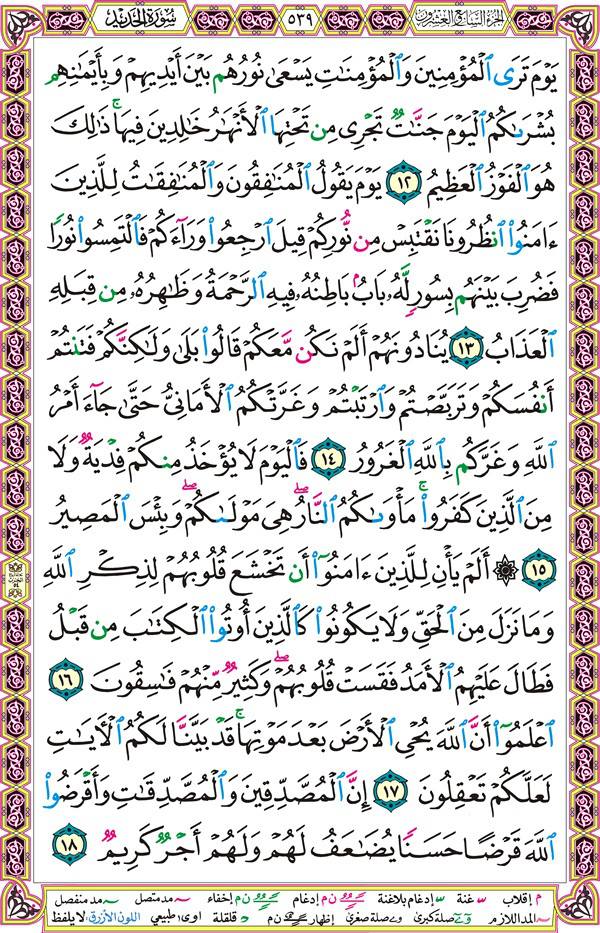 الجزء السابع والعشرون ٥٣٩ سورة الحديد
يَوْمَ تَرَى ٱلْمُؤْمِنِينَ وَٱلْمُؤْمِنَٰتِ يَسْعَىٰ نُورُهُم بَيْنَ أَيْدِيهِمْ وَبِأَيْمَٰنِهِم
بُشْرَىٰكُمُ ٱلْيَوْمَ جَنَّٰتٌ تَجْرِى مِن تَحْتِهَا ٱلْأَنْهَٰرُ خَٰلِدِينَ فِيهَا ۚ ذَٰلِكَ
هُوَ ٱلْفَوْزُ ٱلْعَظِيمُ ١٢ يَوْمَ يَقُولُ ٱلْمُنَٰفِقُونَ وَٱلْمُنَٰفِقَٰتُ لِلَّذِينَ
ءَامَنُوا۟ ٱنظُرُونَا نَقْتَبِسْ مِن نُّورِكُمْ قِيلَ ٱرْجِعُوا۟ وَرَآءَكُمْ فَٱلْتَمِسُوا۟ نُورًا
فَضُرِبَ بَيْنَهُم بِسُورٍ لَّهُۥ بَابٌۢ بَاطِنُهُۥ فِيهِ ٱلرَّحْمَةُ وَظَٰهِرُهُۥ مِن قِبَلِهِ
ٱلْعَذَابُ ١٣ يُنَادُونَهُمْ أَلَمْ نَكُن مَّعَكُمْ قَالُوا۟ بَلَىٰ وَلَٰكِنَّكُمْ فَتَنتُمْ
أَنفُسَكُمْ وَتَرَبَّصْتُمْ وَٱرْتَبْتُمْ وَغَرَّتْكُمُ ٱلْأَمَانِىُّ حَتَّىٰ جَآءَ أَمْرُ
ٱللَّهِ وَغَرَّكُم بِٱللَّهِ ٱلْغَرُورُ ١٤ فَٱلْيَوْمَ لَا يُؤْخَذُ مِنكُمْ فِدْيَةٌ وَلَا
مِنَ ٱلَّذِينَ كَفَرُوا۟ ۚ مَأْوَىٰكُمُ ٱلنَّارُ ۖ هِىَ مَوْلَىٰكُمْ ۖ وَبِئْسَ ٱلْمَصِيرُ
١٥ ۞ أَلَمْ يَأْنِ لِلَّذِينَ ءَامَنُوٓا۟ أَن تَخْشَعَ قُلُوبُهُمْ لِذِكْرِ ٱللَّهِ
وَمَا نَزَلَ مِنَ ٱلْحَقِّ وَلَا يَكُونُوا۟ كَٱلَّذِينَ أُوتُوا۟ ٱلْكِتَٰبَ مِن قَبْلُ
فَطَالَ عَلَيْهِمُ ٱلْأَمَدُ فَقَسَتْ قُلُوبُهُمْ ۖ وَكَثِيرٌ مِّنْهُمْ فَٰسِقُونَ ١٦
ٱعْلَمُوٓا۟ أَنَّ ٱللَّهَ يُحْىِ ٱلْأَرْضَ بَعْدَ مَوْتِهَا ۚ قَدْ بَيَّنَّا لَكُمُ ٱلْءَايَٰتِ
لَعَلَّكُمْ تَعْقِلُونَ ١٧ إِنَّ ٱلْمُصَّدِّقِينَ وَٱلْمُصَّدِّقَٰتِ وَأَقْرَضُوا۟
ٱللَّهَ قَرْضًا حَسَنًا يُضَٰعَفُ لَهُمْ وَلَهُمْ أَجْرٌ كَرِيمٌ ١٨
م إقلاب غنة إدغام بلاغنة ن م إدغام إخفاء مد متصل مد منفصل
المد اللازم صلة كبرى صلة صغرى إظهار ن م قلقلة اوى طبيعي اللون الأزرق: لا يلفظ